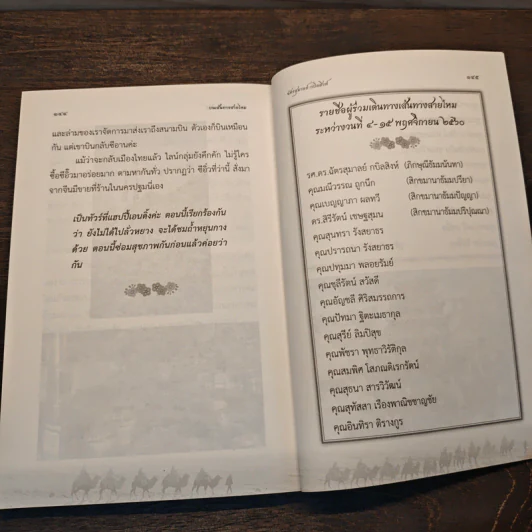 ๑๔๔
และล่ามของเราจัดการมาส่งเราถึงสนามบิน ตัวเองก็บินเหมือน
กัน แต่เขาบินกลับซีอานค่ะ
แม้ว่าจะกลับเมืองไทยแล้ว ไลน์กลุ่มยังคึกคัก ไม่รู้ใคร
ซื้อซีอิ๊วมาอร่อยมาก ตามหากันทั่ว ปรากฏว่า ซีอิ๊วที่ว่านี้ สั่งมา
จากจีนมีขายที่ร้านในนครปฐมนี่เอง
เป็นทัวร์ที่แฮปปี้เอนดิ้งค่ะ ตอนนี้เรียกร้องกัน
ว่า ยังไม่ได้ไปลั่วหยาง จะได้ชมถ้ำหยุนกาง
ด้วย ตอนนี้ซ่อมสุขภาพกันก่อนแล้วค่อยว่า
กัน
๑๔๕
รายชื่อผู้ร่วมเดินทางเส้นทางสายไหม
ระหว่างวันที่ ๔-๑๕ พฤศจิกายน ๒๕๖๐
รศ.ดร.ฉัตรสุมาลย์ กบิลสิงห์ (ภิกษุณีธัมมนันทา)
คุณมณีวรรณ ถูกนึก (สิกขมานาธัมมปริยา)
คุณเบญญาภา ผลทวี (สิกขมานาธัมมปัญญา)
ดร.สิริรัตน์ เชษฐสุมน (สิกขมานาธัมมปริปุณณา)
คุณสุนทรา รังสยาธร
คุณปรารถนา รังสยาธร
คุณปทุมมา พลอยรัมย์
คุณชุลีรัตน์ สวัสดี
คุณอัญชลี ศิริสมรรถการ
คุณปัทมา ฐิตะเมธากุล
คุณสุรีย์ ลิมปิสุข
คุณพัชรา พุทธาวิรัติกุล
คุณสมพิศ โสภณดิเรกรัตน์
คุณสุธนา สารวิวัฒน์
คุณสุทัสสา เรืองพาณิชชาญชัย
คุณอินทิรา ดิรางกูร